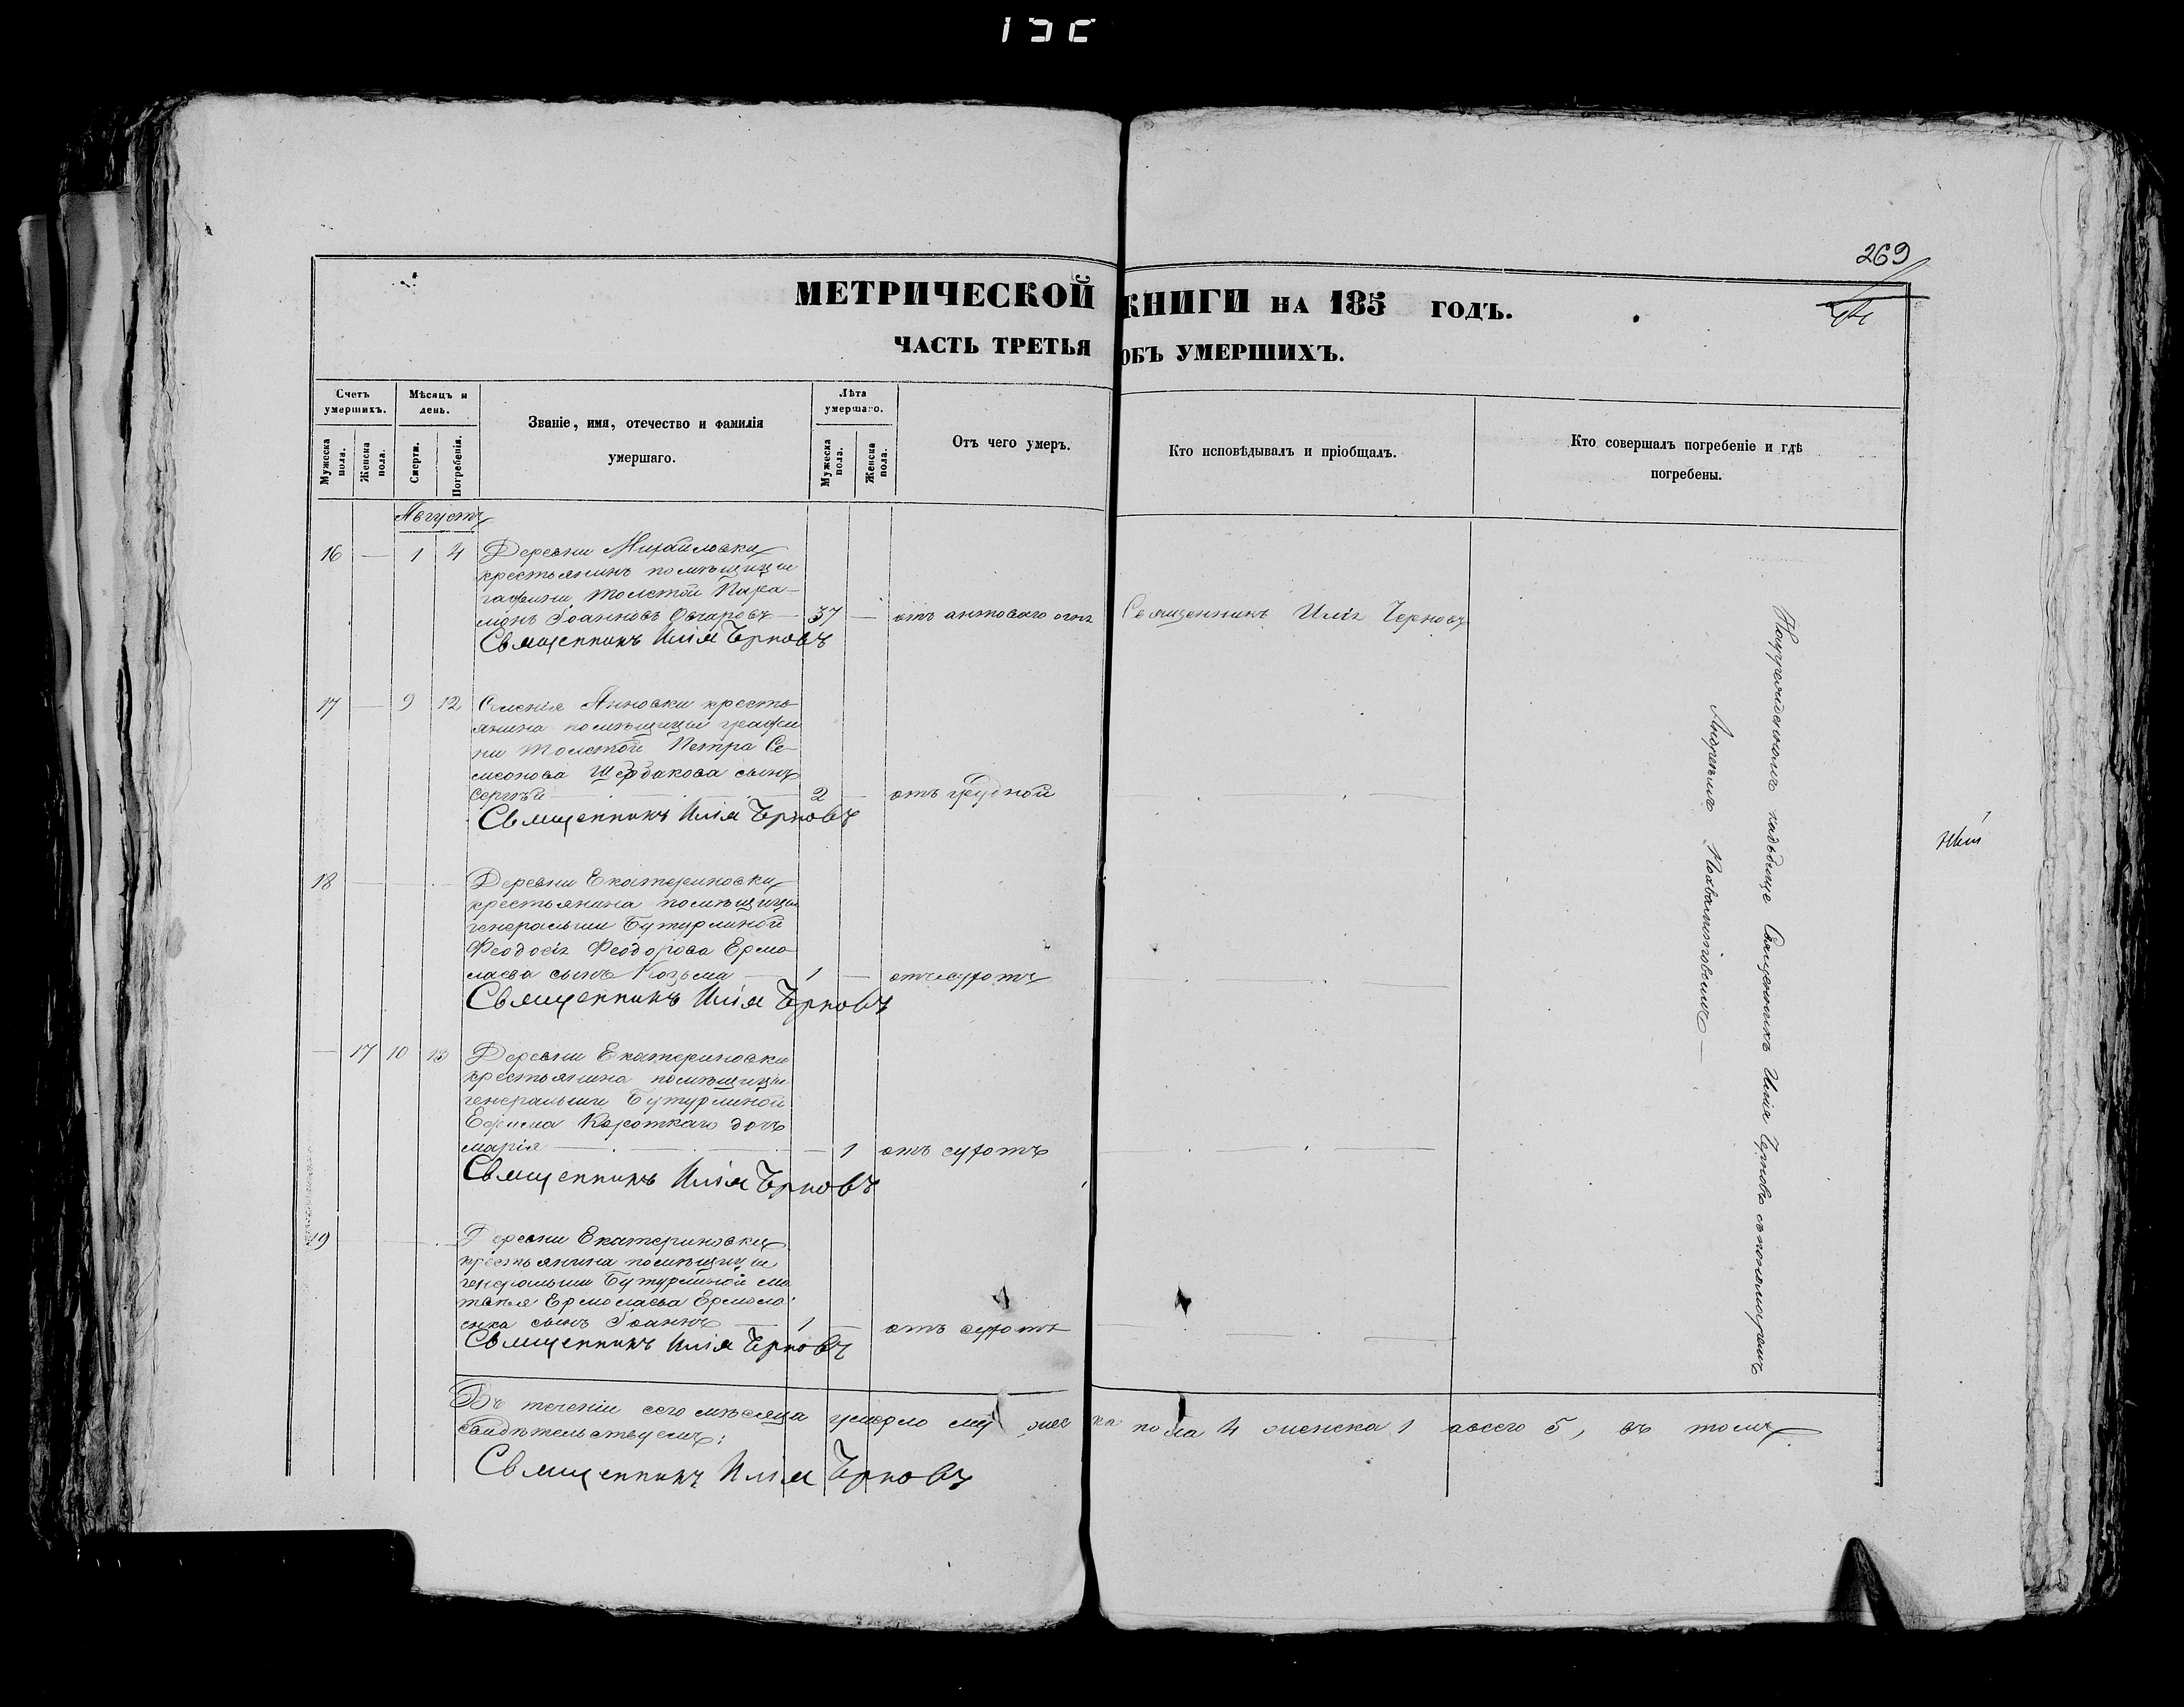 269
МЕТРИЧЕСКОЙ КНИГИ НА 185 ГОДЪ.
ЧАСТЬ ТРЕТЬЯ ОБЪ УМЕРШИХЪ.
Счетъ умершихъ.
Мужеска пола.
Женска пола.
Мѣсяцъ и день.
Смерти.
Погребенія.
Званіе, имя, отечество и фамилія
умершаго.
Лѣта умершаго.
Мужеска пола.
Женска пола.
Отъ чего умеръ.
Кто исповѣдывалъ и пріобщалъ.
Кто совершалъ погребеніе и гдѣ
погребены.
Августъ
16 — 1 4 Деревни Михайловки
крестьянинъ помѣщицы
графини Толстой Пара-
монъ Іоанновъ Овчаровъ — 37 — отъ антоваго огня Священникъ Илія Черновъ
Священникъ Илія Черновъ
17 — 9 12 Селенія Анновки кресть-
янина помѣщицы графи
ни Толстой Петра Се-
меонова Щербакова сынъ
Сергѣй — 2 — отъ грудной
Священникъ Илія Черновъ
18 — Деревни Екатериновки
крестьянина помѣщицы
генеральши Бутурлиной
Феодосія Феодорова Ермо-
лаева сынъ Козьма — 1 — отъ сухотъ
Священникъ Илія Черновъ
— 17 10 13 Деревни Екатериновки
крестьянина помѣщицы
генеральши Бутурлиной
Ефима Короткаго дочь
марія — 1 отъ сухотъ
Священникъ Илія Черновъ
19 — Деревни Екатериновки
крестьянина помѣщицы
генеральши Бутурлиной
Ермолаева Ермола
енка сынъ Іоаннъ — 1 — отъ сухотъ
Священникъ Илія Черновъ
кладбище Священникъ Илія Черновъ съ пономаремъ
Андреемъ
Въ теченіи сего мѣсяца умерло мужеска пола 4 женска 1 всего 5, въ томъ
свидѣтельствуемъ:
Священникъ Илія Черновъ